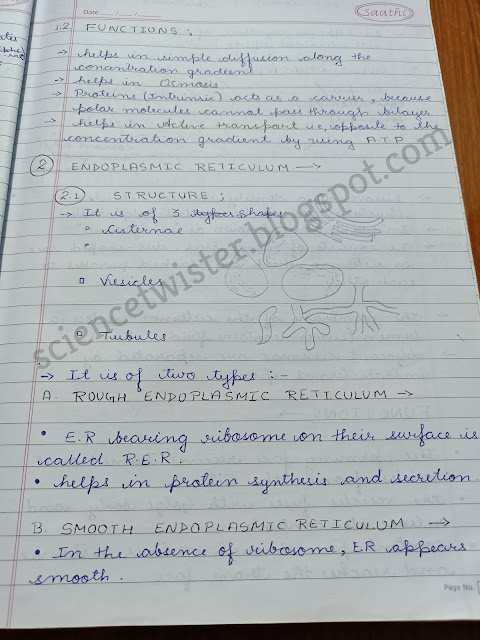 Date ___/___/___
Saathi
1.2 FUNCTIONS :
→ helps in simple diffusion along the
concentration gradient
→ helps in Osmosis
→ Proteins (Intrinsic) acts as a carrier, because
polar molecules cannot pass through bilayer
→ helps in Active transport i.e, opposite to the
concentration gradient by using A.T.P
2 ENDOPLASMIC RETICULUM →
2.1 STRUCTURE :
→ It is of 3 types shapes
Cisternae
Vesicles
Tubules
→ It is of two types :-
A. ROUGH ENDOPLASMIC RETICULUM →
• E.R bearing ribosome on their surface is
called R.E.R.
• helps in protein synthesis and secretion
B. SMOOTH ENDOPLASMIC RETICULUM →
• In the absence of ribosome, ER appears
smooth.
Page No.
sciencetwister.blogspot.com